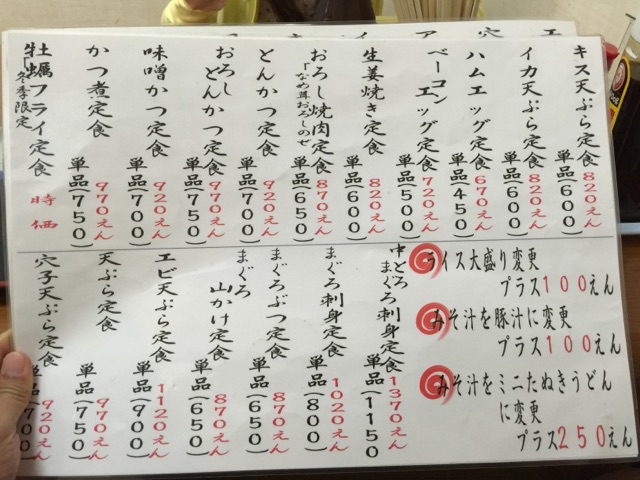 キス天ぷら定食 820えん
単品(600)
イカ天ぷら定食 820えん
単品(600)
ハムエッグ定食 670えん
単品(450)
ベーコンエッグ定食 720えん
単品(500)
生姜焼き定食 820えん
単品(600)
おろし焼肉定食 870えん
「なめ茸おろしのせ
単品(650)
とんかつ定食 920えん
単品(700)
おろし
とんかつ定食 970えん
単品(750)
味噌かつ定食 920えん
単品(700)
かつ煮定食 970えん
単品(750)
牡蠣フライ定食 時価
「冬季限定
ライス大盛り変更
プラス100えん
みそ汁を豚汁に変更
プラス100えん
みそ汁をミニたぬきうどん
に変更
プラス250えん
中とろ
まぐろ刺身定食 1370えん
単品(1150
まぐろ刺身定食 1020えん
単品(800)
まぐろぶつ定食 870えん
単品(650)
まぐろ
山かけ定食 870えん
単品(650)
エビ天ぷら定食 1120えん
単品(900)
天ぷら定食 970えん
単品(750)
穴子天ぷら定食 920えん
単品(700)